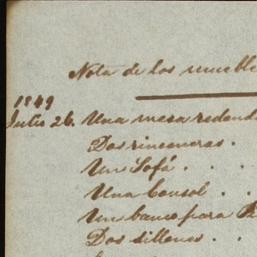 Nota de los mueble
1849
Julio 26. Una mesa redond
Dos rinconeras .
Un Sofá . .
Una Consol . .
Un banco para
Dos sillones . .